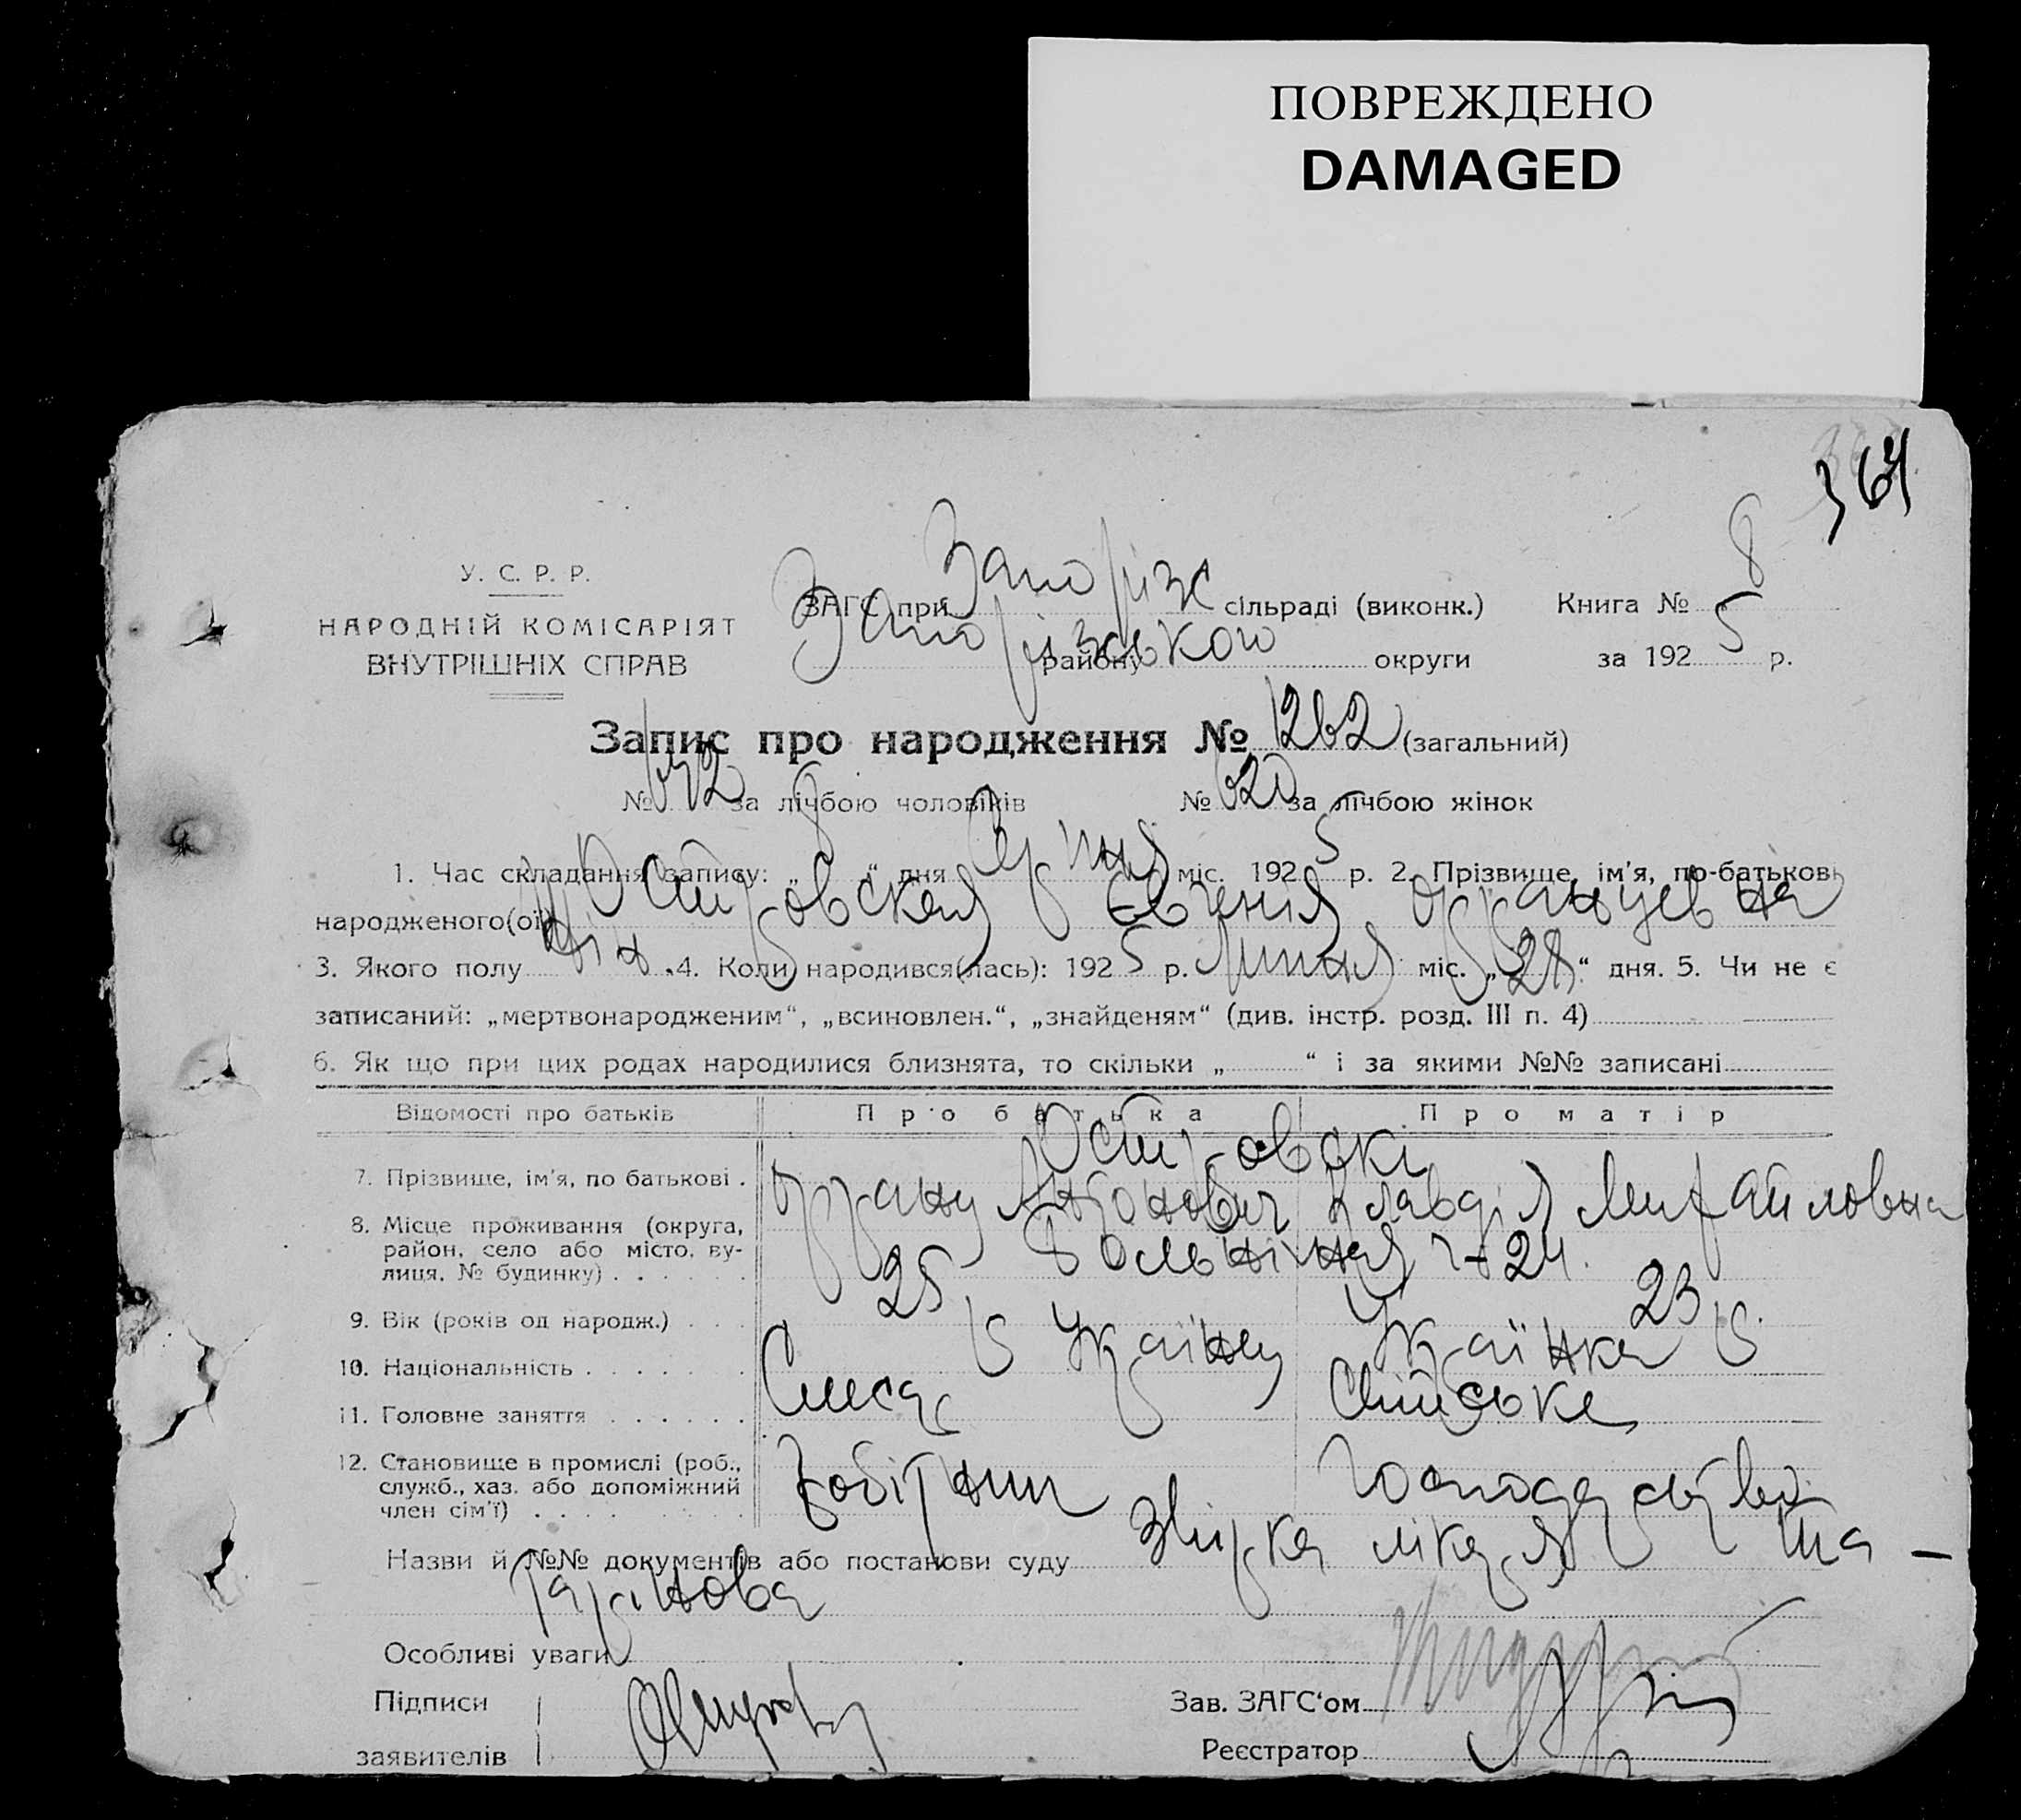 ПОВРЕЖДЕНО
DAMAGED
364
У. С. Р. Р.
НАРОДНІЙ КОМІСАРІЯТ
ВНУТРІШНІХ СПРАВ
ЗАГС при Запоріз сільраді (виконк.) Книга № 8
Запорізькою району округи за 1925 р.
Запис про народження № 1262 (загальний)
№ за лічбою чоловіків № 620 за лічбою жінок
1. Час складання запису: „8“ дня Серпня міс. 1925 р. 2. Прізвище, ім'я, по-батькові
народженого(ої) Островская Євгенія Францевна
3. Якого полу жін .4. Коли народився(лась): 1925 р. Липня міс. „28“ дня. 5. Чи не є
записаний: „мертвонародженим“, „всиновлен.“, „знайденям“ (див. інстр. розд. III п. 4)
6. Як що при цих родах народилися близнята, то скільки „ “ і за якими №№ записані
Відомості про батьків Про батька Про матір
Островскі
7. Прізвище, ім'я, по батькові . Франц Антонович Клавдія Михайловна
8. Місце проживання (округа, район, село або місто, вулиця, № будинку) . . . . . . Больнічная 24.
9. Вік (років од народж.) . . . 25 р 23 р.
10. Національність . . . . . . Українец Українка
11. Головне заняття . . . . . . Слесар Сільське
12. Становище в промислі (роб., служб., хаз. або допоміжний член сім'ї) . . . . Робітник Господарство
Назви й №№ документів або постанови суду лікаря Та-
рапінова
Особливі уваги
Підписи Зав. ЗАГС'ом
заявителів Реєстратор